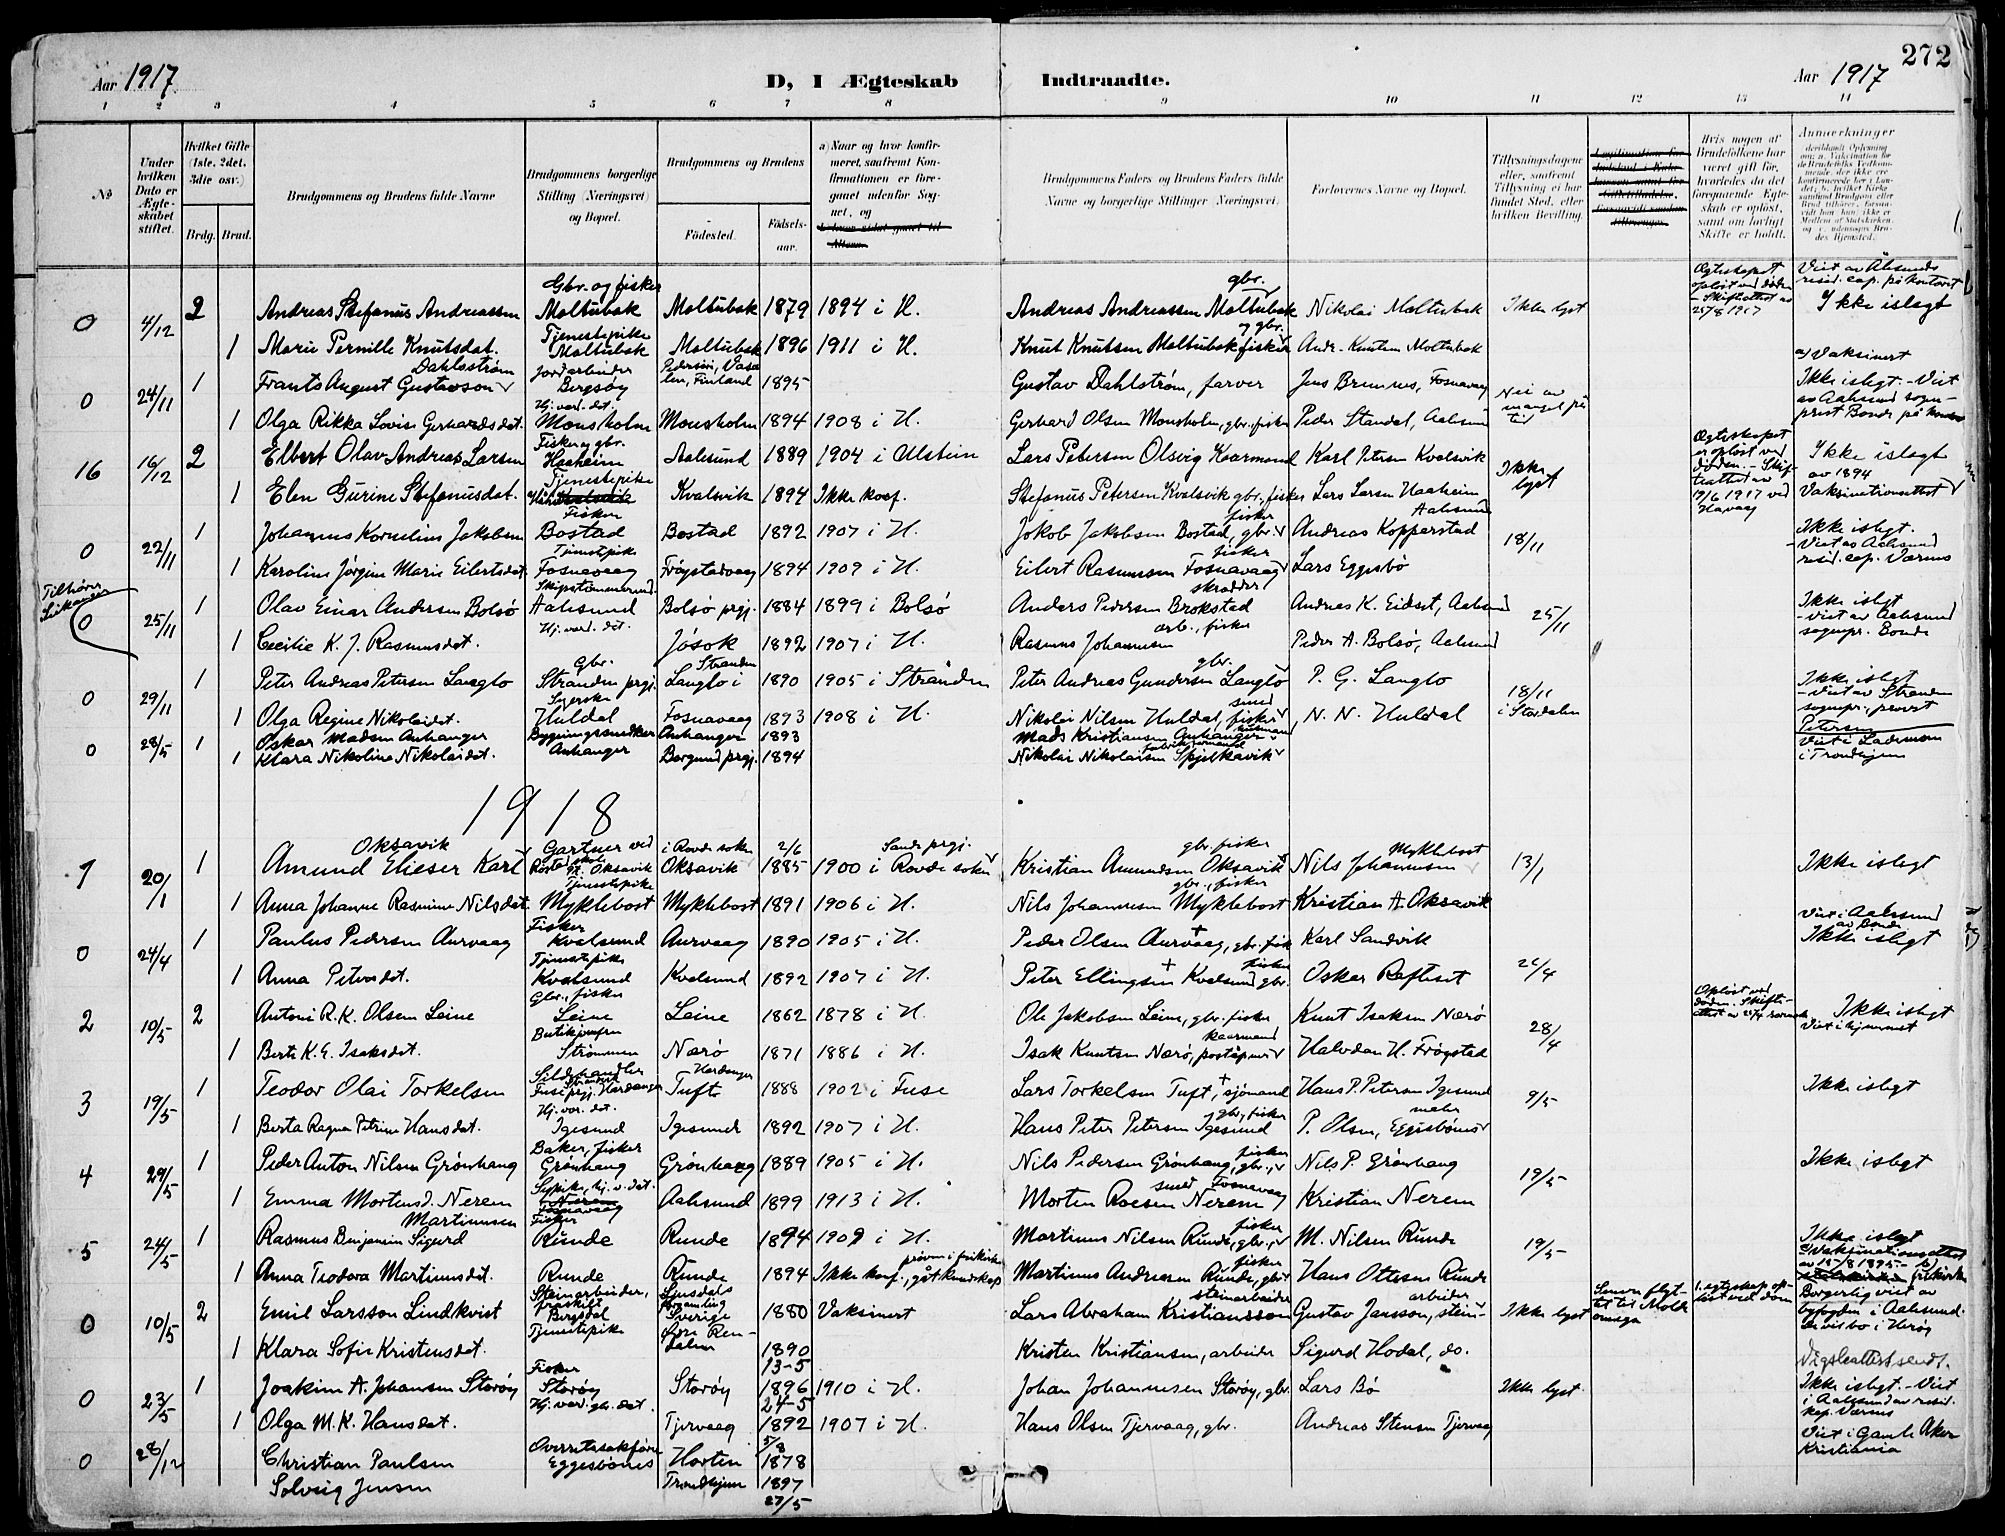 Aar 1917. D, I Ægteskab Indtraadte. Aar 1917 272
1 2 3 4 5 6 7 8 9 10 11 12 13 14
No
Under hvilken Dato er Ægteskabet stiftet.
Hvilket Gifte (1ste, 2det, 3die osv.)
Brdg. Brud.
Brudgommens og Brudens fulde Navne
Brudgommens borgerlige Stilling (Næringsvei) og Bopæl.
Brudgommens og Brudens
Fødested. Fødsels-aar.
a) Naar og hvor konfirmeret, saafremt Konfirmationen er foregaaet udenfor Sognet, og
Brudgommens Faders og Brudens Faders fulde Navne og borgerlige Stillinger (Næringsvei).
Forlovernes Navne og Bopæl.
Tillysningsdagene eller, saafremt Tillysning ei har fundet Sted, efter hvilken Bevilling.
Hvis nogen af Brudefolkene har været gift før, hvorledes da det foregaaende Ægteskab er opløst, samt om lovligt Skifte er holdt.
Anmerkninger
0 4/12 2 Andreas Stefanus Andreassen Gbr. og fisker Moltubak Moltubak 1879 1894 i H. Andreas Andreassen Moltubak gbr. Nikolai Moltubak Ikke lyst Ægteskapet opløst ved døden - Skifteattest av 25/8 1917 Viet av Ålesunds resid. cap. på kontoret Ikke islegt
1 Marie Pernille Knutsdat. Tjenestepike Moltubak Moltubak 1896 1911 i H. Knut Knutsen Moltubak gbr. fisker Andr. Knutsen Moltubak
0 24/11 1 Frants August Gustavson Dahlstrøm Jordarbeider Bergsøy Finland 1895 Gustav Dahlstrøm, farver Jens Brunnes, Fosnavaag Nei av mangel på tid a) Vaksinert Ikke islegt. - Viet av Aalesund sogneprest Bonde på kontor
1 Olga Rikka Lovise Gerhardsdat. Hj. var. dat. Mousholm Mousholm 1894 1908 i H. Gerhard Olsen Mousholm, gbr. fisker Peder Standal, Aalesund
16 16/12 2 Elbert Olav Andreas Larsen Fisker, gbr. Haaheim Aalesund 1889 1904 i Ulstein Lars Petersen Olsvig Kaarmand Karl Petersen Kvalsvik Ikke lyst Ægteskapet er opløst ved døden. - Skifteattest av 19/6 1917 ved Havaag Ikke islegt av 1894 Vaksinationsattest
1 Elen Gurine Stefanusdat. Tjenestepike Kvalsvik 1894 Ikke konf. Stefanus Petersen Kvalsvik gbr. fisker Lars Larsen Haaheim
0 22/11 1 Johannes Kornelius Jakobsen Fisker Bostad Bostad 1892 1907 i H. Jakob Jakobsen Bostad, gbr. fisker Andreas Kopperstad Aalesund 18/11 Ikke islegt. - Viet av Aalesund resid. cap. Varnus
1 Karoline Jørgine Marie Eilertsdat. Tjenestepike Fosnavaag Frøystadvaag 1894 1909 i H. Eilert Rasmussen Fosnavaag fisker Lars Eggesbø
Tilhører Leikanger
0 25/11 1 Olav Einar Andersen Bolsø Skipstømmermd. Aalesund Bolsø prgj. 1884 1899 i Bolsø Anders Pedersen Brokstad skrædder Andreas K. Eidset, Aalesund 25/11 Ikke islegt - viet av Aalesund sognepr. Bonde
1 Cecilie K. J. Rasmusdat. Hj. var. dat. Jøsok 1892 1907 i H. Rasmus Johannesen arb., fisker Peder A. Bolsø, Aalesund
0 29/11 1 Peter Andreas Petersen Langlo Gbr. Stranden prgj. Langlo i Stranden 1890 1905 i Stranden Peter Andreas Gundersen Langlo gbr. P. G. Langlo 18/11 i Stordalen Ikke islegt - Viet av Stranden sognepr. provst Petersen
1 Olga Regine Nikolaidat. Syerske Huldal Fosnavaag 1893 1908 i H. Nikolai Nilsen Huldal, smed fisker N. N. Huldal
0 28/5 1 Oskar Madsen Anhanger Bygningssnedker Anhanger 1893 Mads Kristiansen Anhanger husmand Viet i Lademoen i Trondhjem
1 Klara Nikoline Nikolaidat. Anhanger Borgund prgj. 1894 Nikolai Nikolaisen Spjelkavik
1918
1 20/1 1 Amund Elieser Karl Oksavik Gartner ved Oksavik i Rovde sokn Oksavik 2/6 1885 1900 i Rovde sokn Sande prgj. Kristian Amundsen Oksavik gbr. fisker Nils Johannesen Myklebost 13/1 Ikke islegt
1 Anna Johanne Rasmine Nilsdat. Tjenestepike Myklebost Myklebost 1891 1906 i H. Nils Johannesen Myklebost gbr., fisker Kristian A. Oksavik
0 24/4 1 Paulus Pedersen Aurvaag Fisker Kvalsund Aurvaag 1890 1905 i H. Peder Olsen Aurvaag, gbr. fisk Karl Sandvik 21/4 Viet i Aalesund av Bonde Ikke islegt
1 Anna Petersdat. Tjenestepike Kvalsund Kvalsund 1892 1907 i H. Peter Ellingsen Kvalsund gbr. fisker Oskar Refteset
2 10/5 2 Antoni R. K. Olsen Leine Gbr., fisker Leine Leine 1862 1878 i H. Ole Jakobsen Leine, gbr. fisker Knut Isaksen Nærø 28/4 Opløst ved døden. Ikke islegt Viet i hjemmet
1 Berte K. E. Isaksdat. Butikjomfru Strømmen Nærø 1871 1886 i H. Isak Knutsen Nærø, postaapner kaarmand Halvdan H. Frøystad
3 19/5 1 Teodor Olai Torkelsen Sildehandler Fuse prgj. Hardanger Tuft Hardanger 1888 1902 i Fuse Lars Torkelsen Tuft, + sjømand Hans P. Petersen Igesund 9/5 Ikke islegt
1 Berta Ragna Petrine Hansdat. Hj. var. dat. Igesund Igesund 1892 1907 i H. Hans Peter Petersen Igesund gbr. fisker P. Olsen, maler Eggesbønes
4 29/5 1 Peder Anton Nilsen Grønhaug Baker, fisker Grønhaug Grønhaug 1889 1905 i H. Nils Pedersen Grønhaug, gbr., fisker Nils P. Grønhaug 19/5 Ikke islegt
1 Emma Mortensd. Nerem Sypike, hj. v. dat. Fosnavaag Aalesund 1899 1913 i H. Morten Roesen Nerem smed Fosnavaag Kristian Nerem
5 24/5 1 Rasmus Benjamin Sigurd Martinusen Fisker Runde Runde 1894 1909 i H. Martinus Nilsen Runde, gbr., fisker M. Nilsen Runde 19/5 Ikke islegt
1 Anna Teodora Martinusdat. Runde Runde 1894 Ikke konf., gåt kundskap prøven i frikirke Martinus Andreasen Runde, gbr. fisker Hans Ottesen Runde a) Vaksinationsattest av 15/8 1895. - b) frikirke
0 10/5 2 Emil Larsson Lindkvist Steinarbeider, fraskilt Bergsdal Ljusdals forsamling Sverige 1880 Vaksinert Lars Abraham Kristiansson steinarbeider Gustav Jansson, steinarbeider Ikke lyst Senere flyttet til Molde omegn 1. egteskap opløst ved dom Borgerlig viet av byfogden i Aalesund. Av vielbo i Herøy
1 Klara Sofie Kristensdat. Tjenestepike Søre Rendalen 1890 Kristen Kristiansen, arbeider Sigurd Hodal, do.
0 23/5 1 Joakim A. Johansen Storøy Fisker Storøy Storøy 13-5 1896 1910 i H. Johan Johannesen Storøy, gbr. Lars Bø Ikke lyst. Vigsleattest sendt. Ikke islegt. - Viet i Aalesund av resid. kap. Varnus
1 Olga M. K. Hansdat. Hj. var. gbr. dat. Tjervaag 24-5 1892 1907 i H. Hans Olsen Tjervaag, gbr. Andreas Stensen Tjervaag
0 28/12 Christian Paulsen Overretssakfører Eggesbønes Horten 5/8 1878 Viet i Gamle Aker Kristiania
Solveig Jensen Trondhjem 1897 27/5